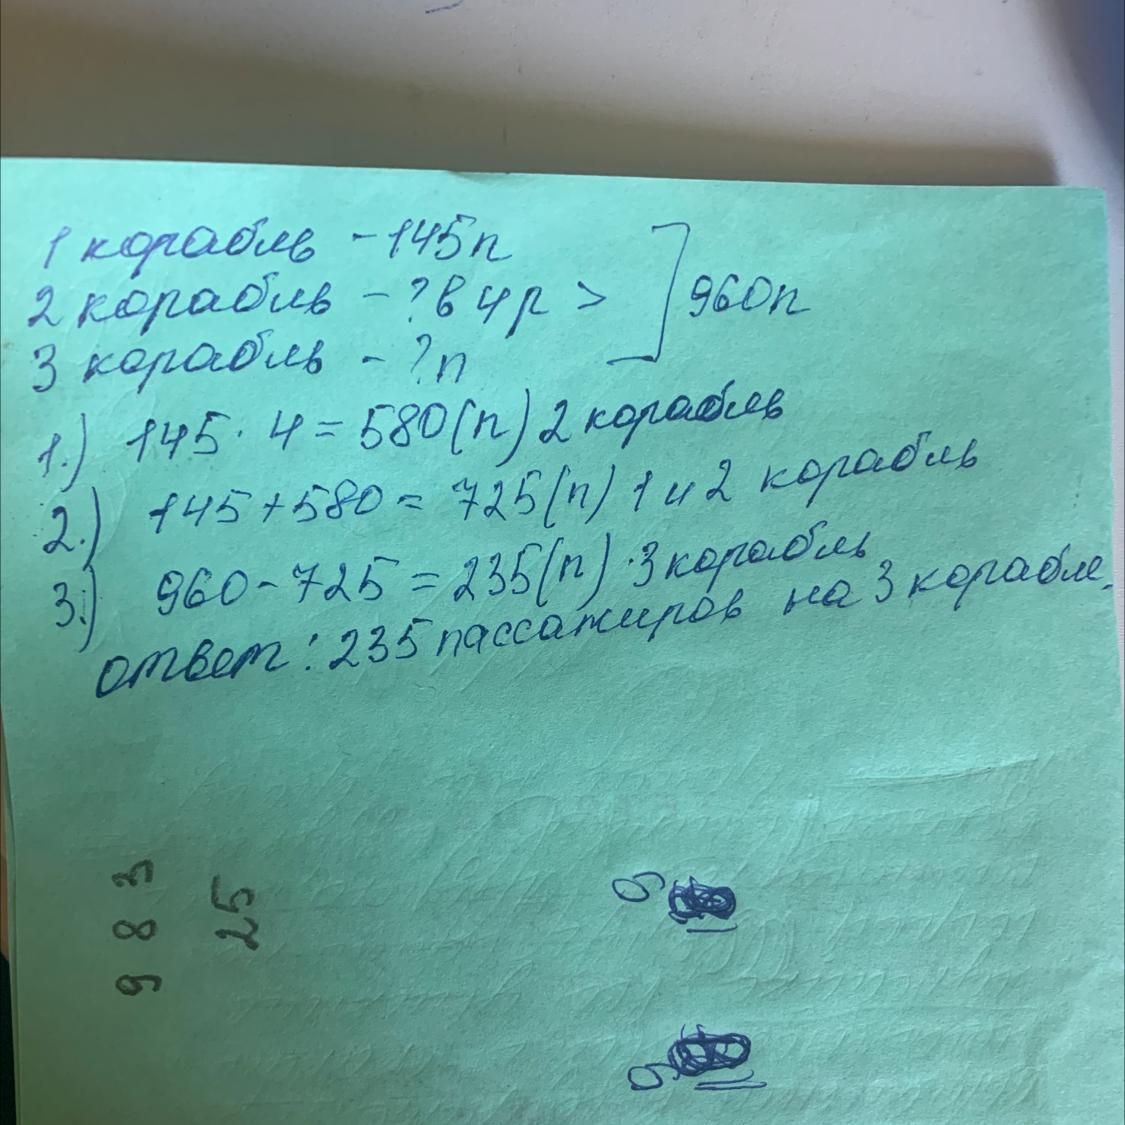 1 корабль - 145п
2 корабль - ? в 4 р >
3 корабль - ? п
] 960п
1.) 145 · 4 = 580 (п) 2 корабль
2.) 145 + 580 = 725 (п) 1 и 2 корабль
3.) 960 - 725 = 235 (п) · 3 корабль
ответ: 235 пассажиров на 3 корабле.
9 8 3
25
9
9